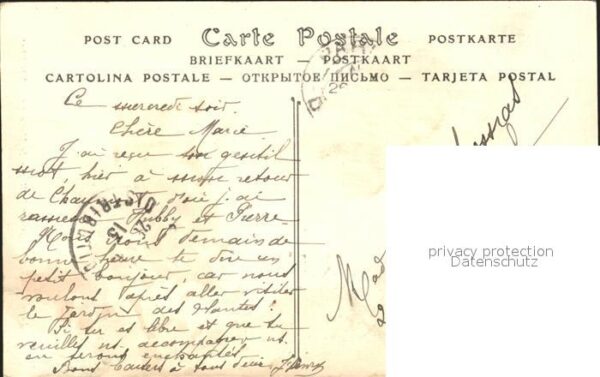 POST CARD Carte Postale POSTKARTE
BRIEFKAART — POSTKAART
CARTOLINA POSTALE — ОТКРЫТОЕ ПИСЬМО — TARJETA POSTAL
Ce mercredi soir.
Chère Marie
J'ai reçu ton gentil
mot, hier à mon retour
de d'où j'ai
Hubby et Pierre
Nous irons demain de
bonne heure te dire un
petit bonjour, car nous
voulons après aller visiter
le Jardin des Plantes!
Si tu es libre et que tu
veuilles ns. accompagner ns.
en serons enchantés
Bons baisers à tous deux
Mad
privacy protection
Datenschutz